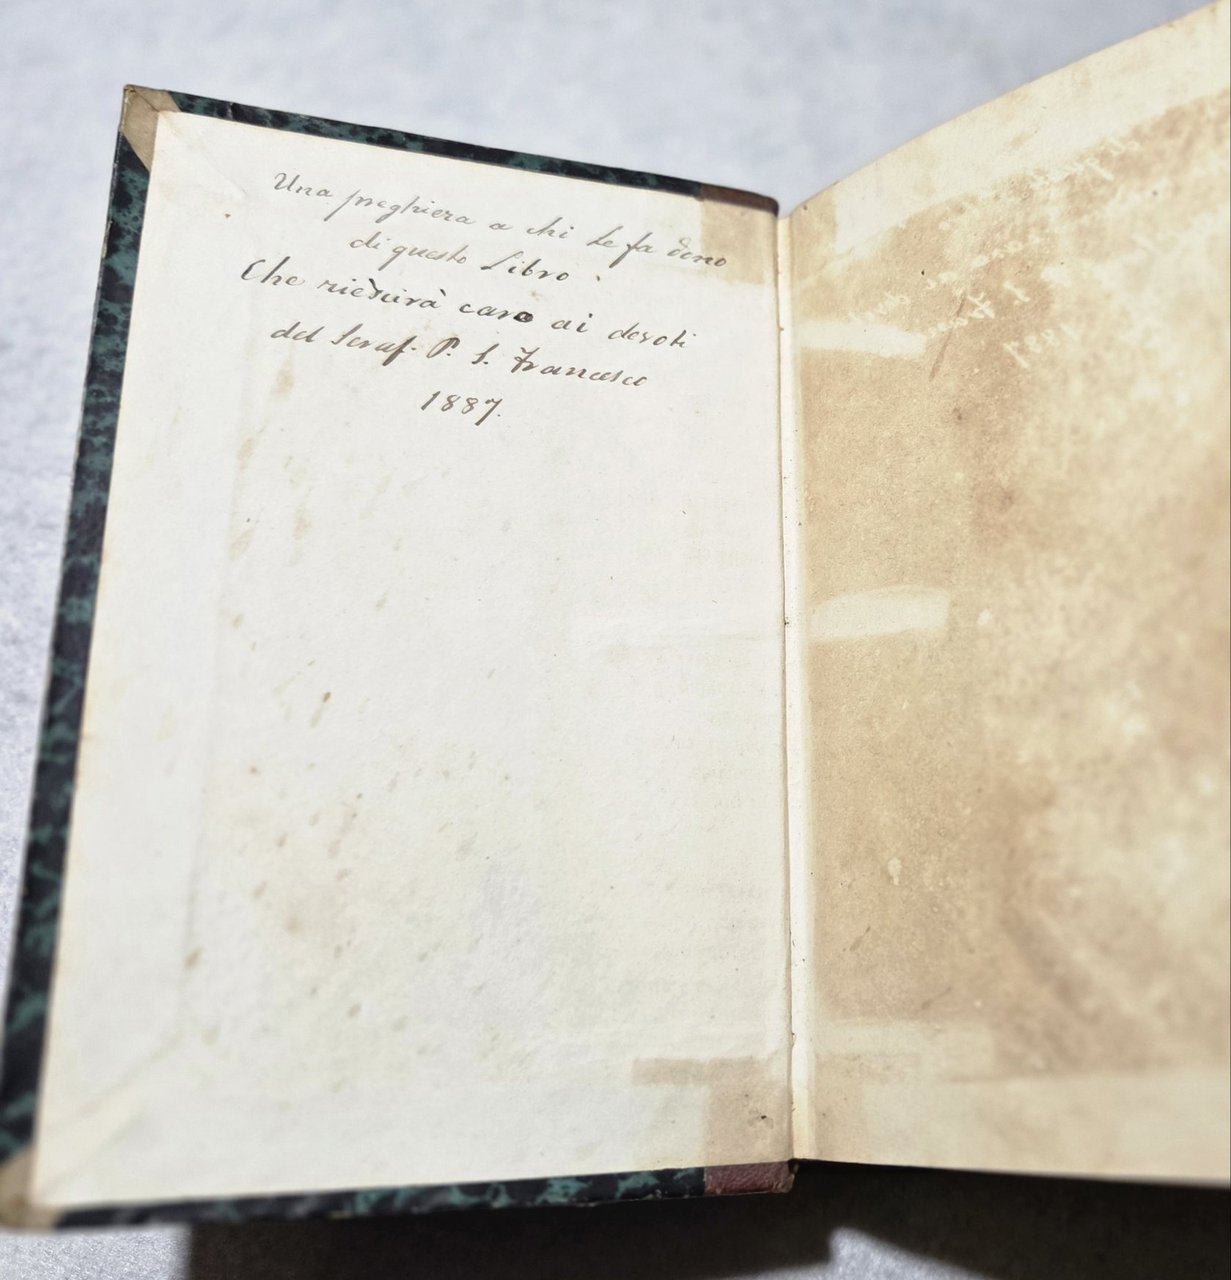 Una preghiera a chi Le fa dono
di questo Libro.
Che riescirà caro ai devoti
del Seraf. P. S. Francesco
1887.